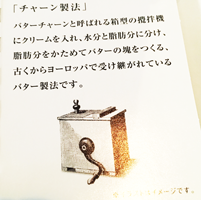 「チャーン製法」
バターチャーンと呼ばれる箱型の攪拌機
にクリームを入れ、水分と脂肪分に分け、
脂肪分をかためてバターの塊をつくる、
古くからヨーロッパで受け継がれている
バター製法です。
イメージです。